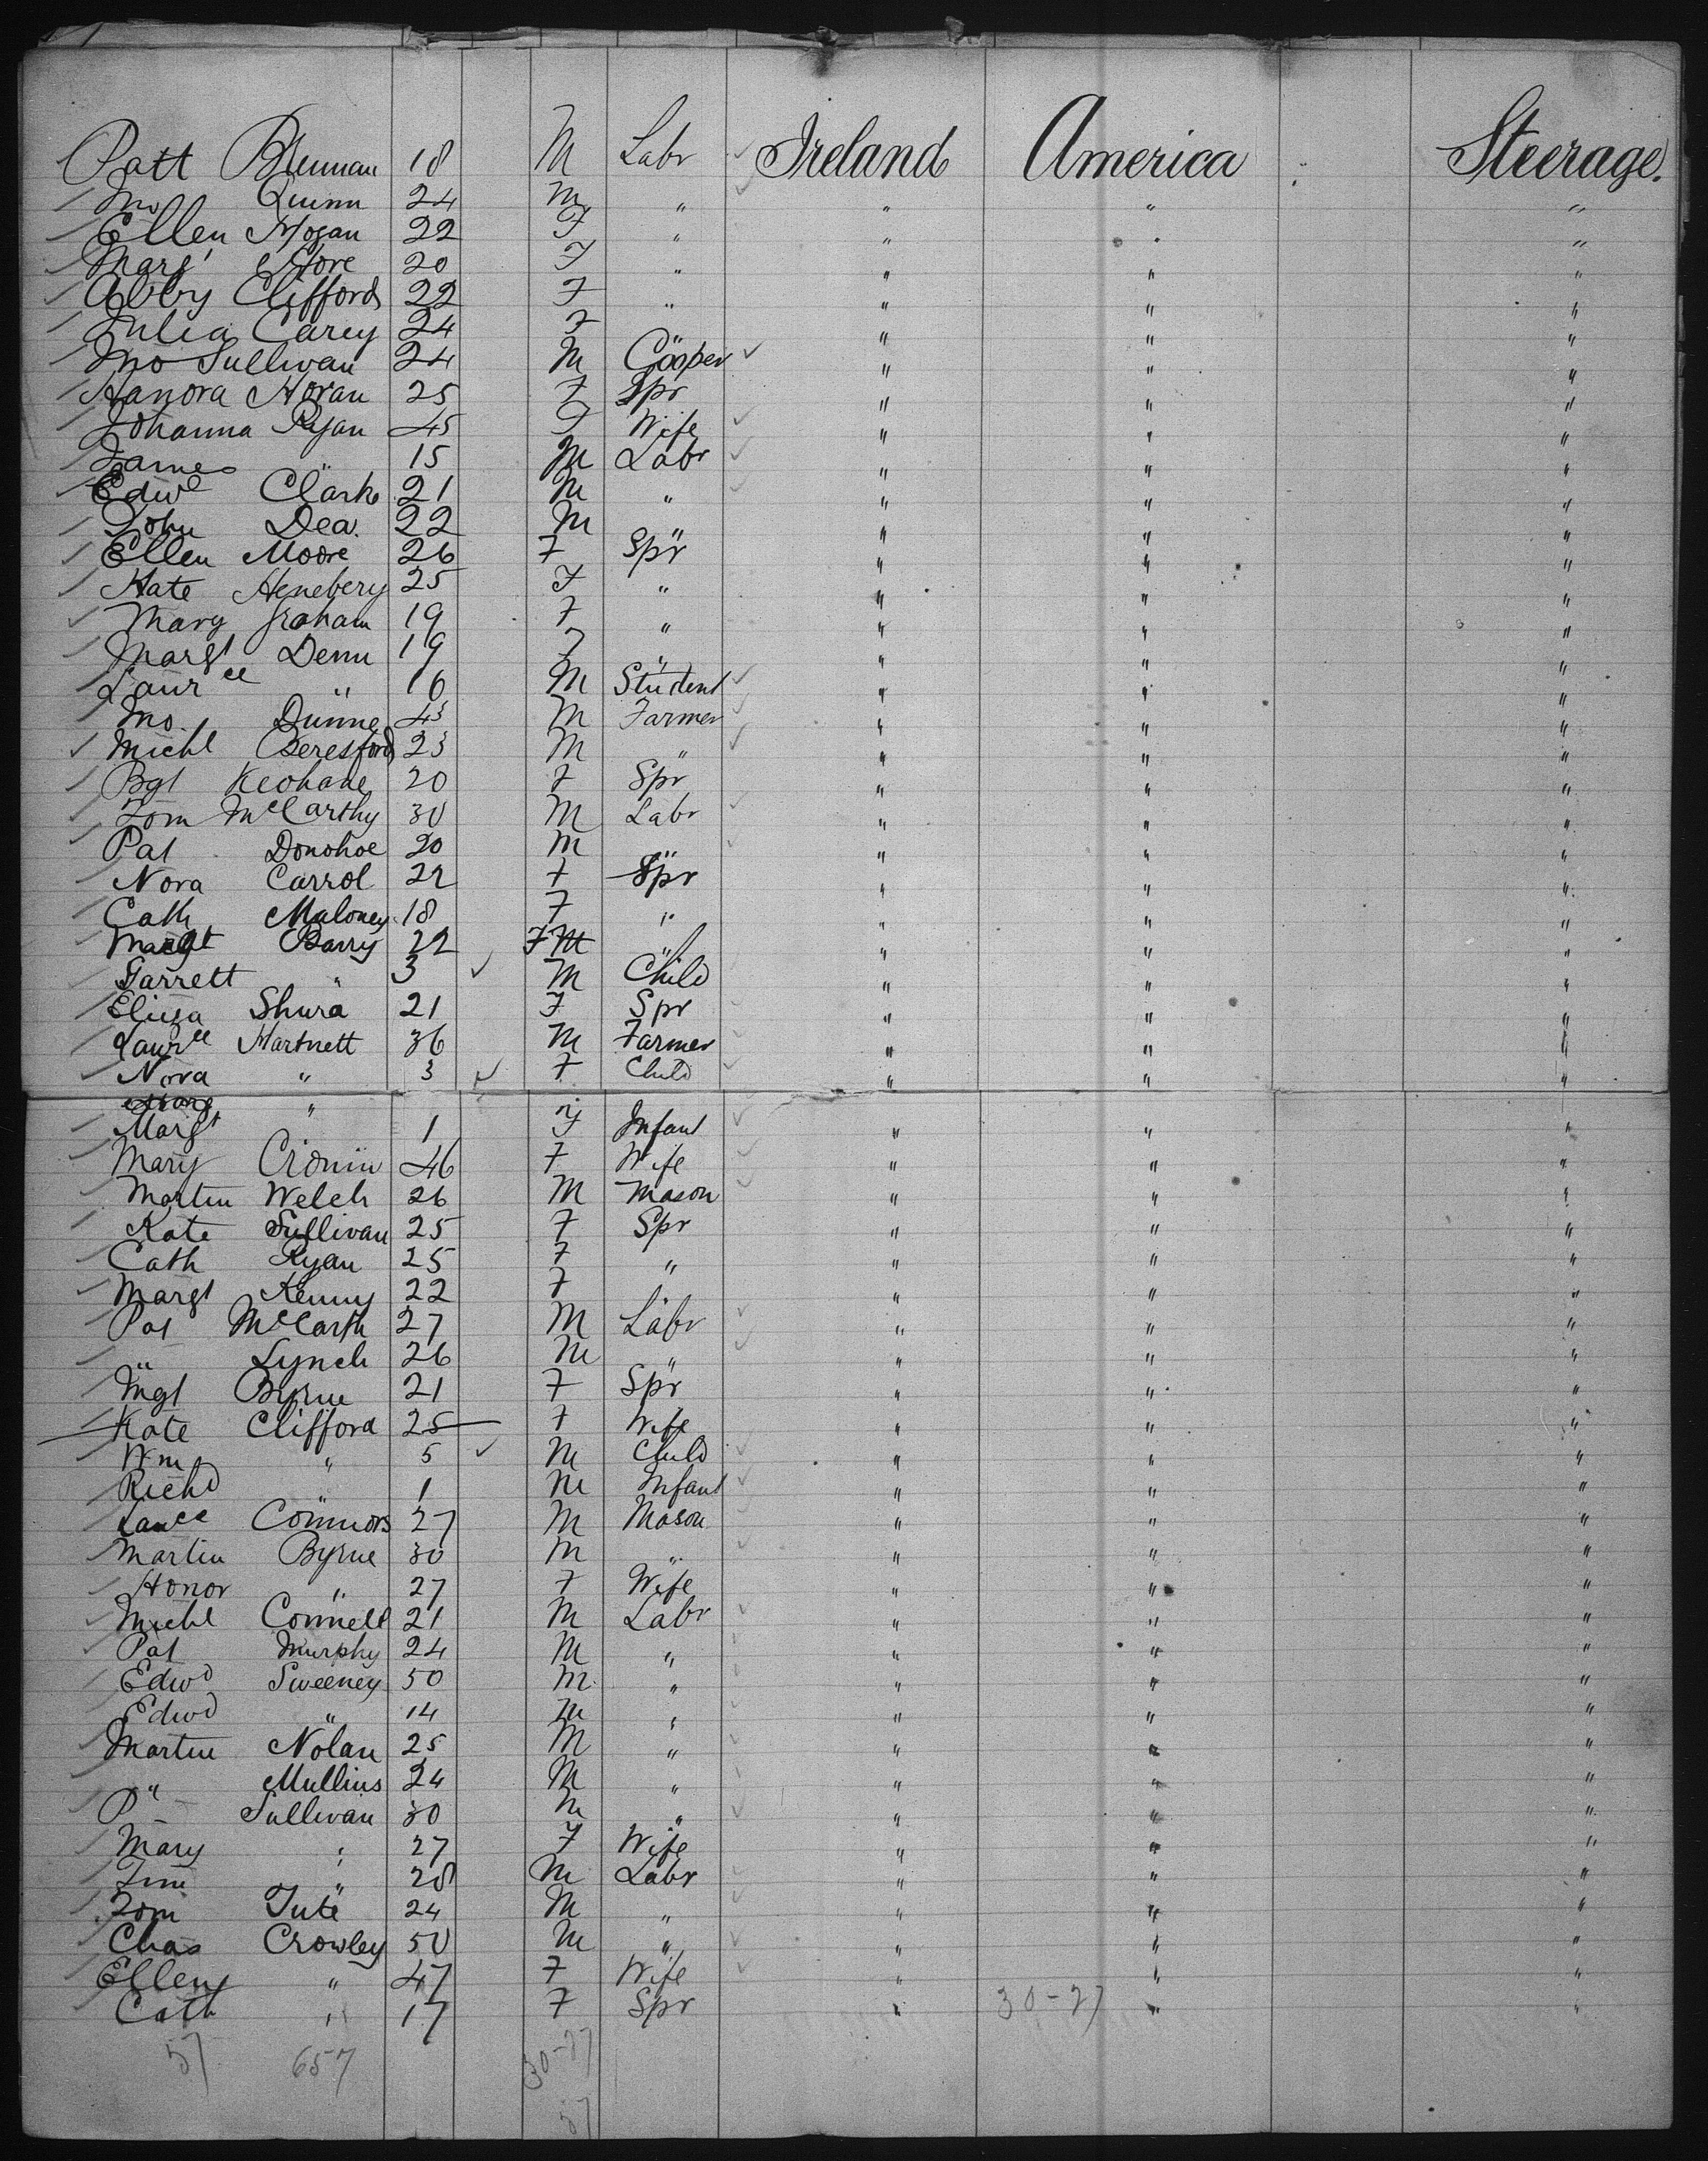 Patt Brennan 18 M Labr Ireland America Steerage.
Jno Quinn 24 M " " " "
Ellen Hogan 22 F " " " "
Margt Hore 20 F " " " "
Abby Clifford 22 F " " " "
Julia Carey 24 F " " " "
Jno Sullivan 24 M Cooper " " "
Hanora Horan 25 F Spr " " "
Johanna Ryan 45 F Wife " " "
James " 15 M Labr " " "
Edwd Clark 21 M " " " "
John Dea. 22 M " " " "
Ellen Moore 26 F Spr " " "
Kate Henebery 25 F " " " "
Mary Graham 19 F " " " "
Margt Denn 19 F " " " "
Laurce " 16 M Student " " "
Jno. Dunne 43 M Farmer " " "
Michl Beresford 23 M " " " "
Bgt Keohane 20 F Spr " " "
Tom McCarthy 30 M Labr " " "
Pat Donohoe 20 M " " " "
Nora Carrol 22 F Spr " " "
Cath Maloney 18 F " " " "
Margt Barry 22 F M " " " "
Garrett " 3 M Child " " "
Eliza Shura 21 F Spr " " "
Laurce Hartnett 36 M Farmer " " "
Nora " 3 F Child " " "
Marg "
Margt 1 F Infant " " "
Mary Cronin 46 F Wife " " "
Martin Welch 26 M Mason " " "
Kate Sullivan 25 F Spr " " "
Cath Ryan 25 F " " " "
Margt Kenny 22 F " " " "
Pat McCarth 27 M Labr " " "
" Lynch 26 M " " " "
Mgt Byrne 21 F Spr " " "
Kate Clifford 25 F Wife " " "
Wm " 5 M Child " " "
Richd " 1 M Infant " " "
Laurce Connors 27 M Mason " " "
Martin Byrne 30 M " " " "
Honor " 27 F Wife " " "
Michl Connell 21 M Labr " " "
Pat Murphy 24 M " " " "
Edwd Sweeney 50 M " " " "
Edwd " 14 M " " " "
Martin Nolan 25 M " " " "
" Mullins 24 M " " " "
P Sullivan 30 M " " " "
Mary " 27 F Wife " " "
Tim " 28 M Labr " " "
Tom Tute 24 M " " " "
Chas Crowley 50 M " " " "
Ellen " 47 F Wife " " "
Cath " 17 F Spr " 30-27 " "
57 657 30-27
57